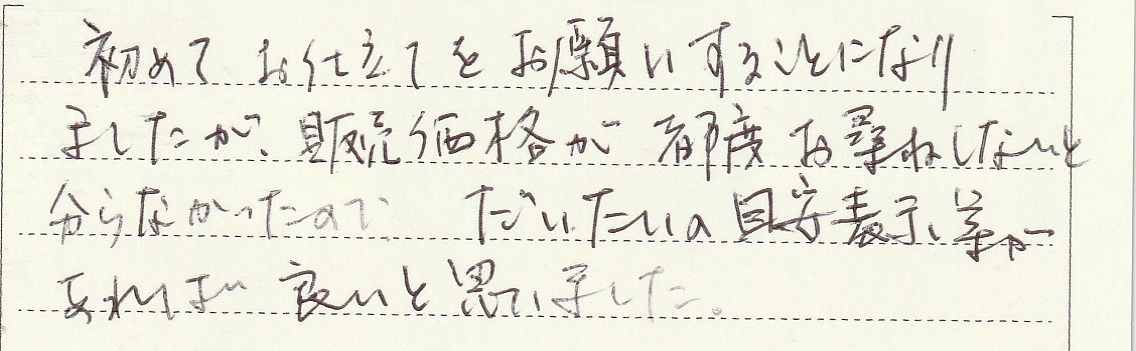 初めてお仕立てをお願いすることになり
ましたが、販売価格が都度お尋ねしないと
分らなかったので だいたいの目安表示、等が
あれば良いと思いました。